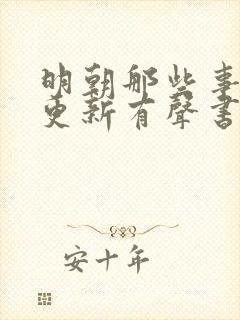 明朝那些事
更新有聲書
安十年